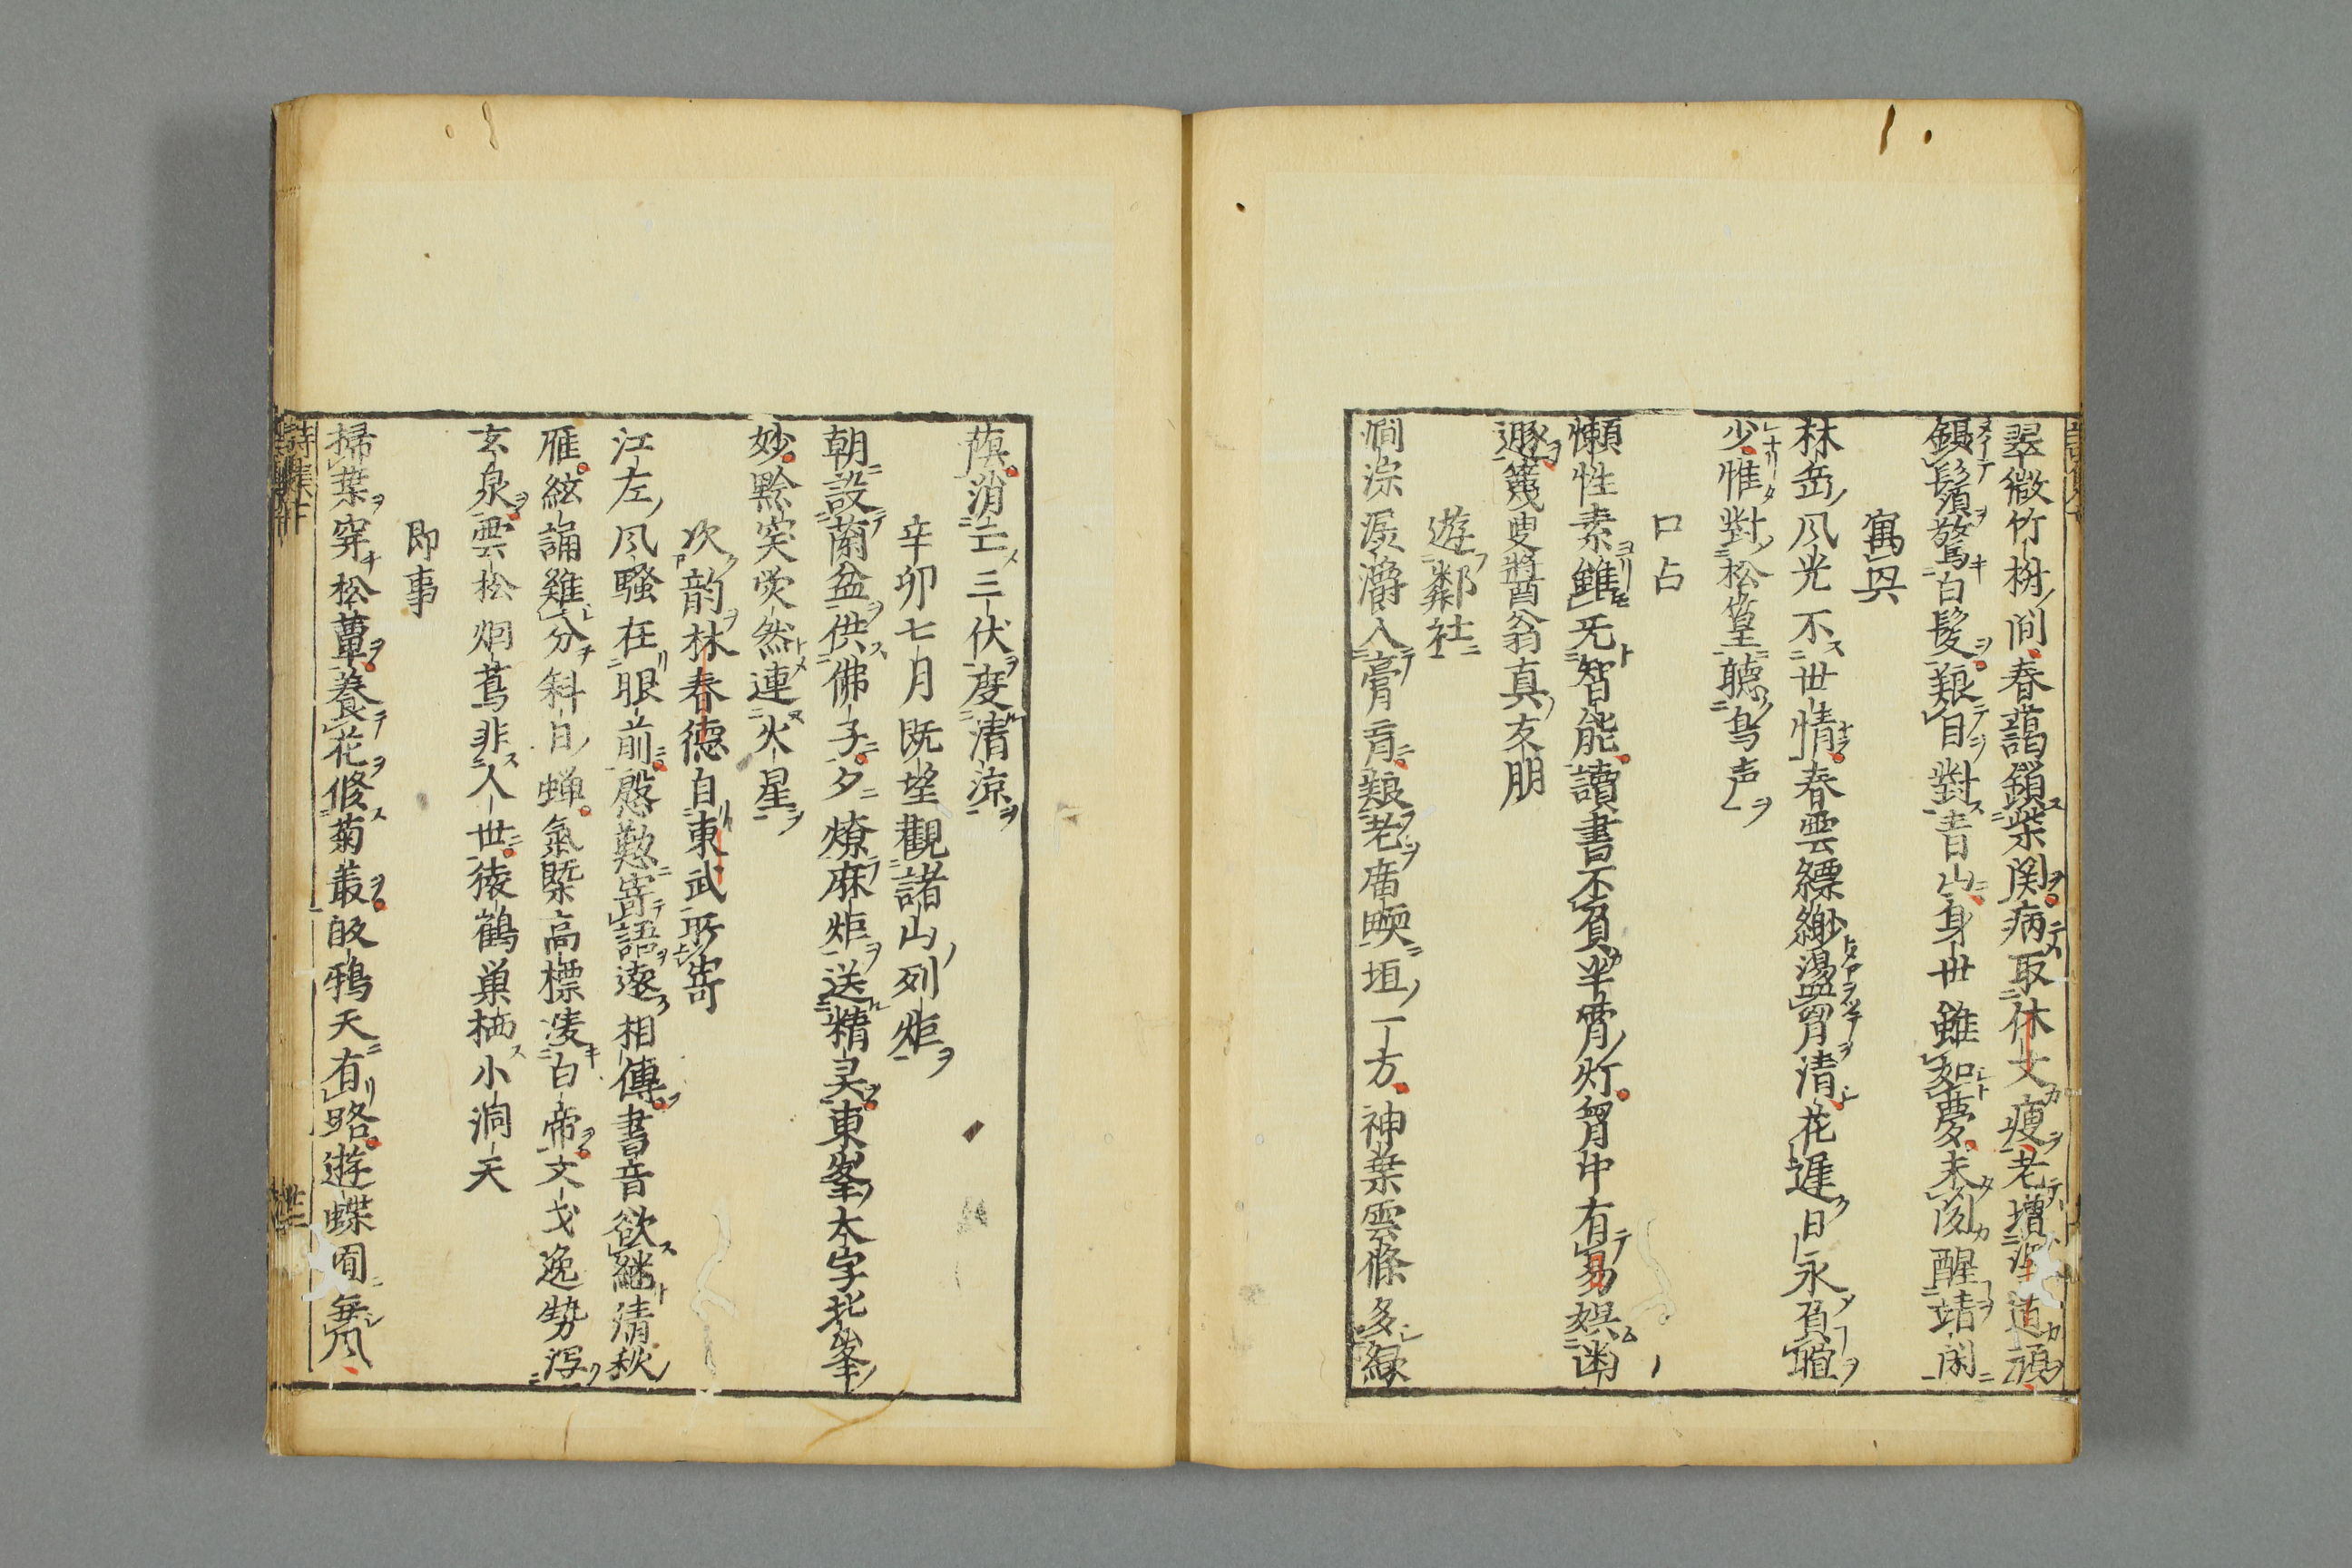 翠微竹樹間春藹鎖柴関病取休文瘦老增道
鑷鬚驚白髪 自對青山身世雖如夢未 醒靖閑
寓興
林岳風光不世情春雲縹緲盪胷清花遲日永
少惟對松篁聽鳥声
口占
懶性素雖无智能讀書不負半宵灯胷中有易娯幽
遯 叟醬翁真友朋
遊鄰社
澗淙 入膏肓 老 垣一方神葉雲條多緑
蔭消亡三伏度清涼
辛卯七月既望觀諸山列炬
朝設蘭盆供佛子夕燎麻炬送精灵東峯太字北峯
妙黔突熒然連火星
次韵林春德自東武所寄
江左風騷在眼前慇懃寄語遠相傳書音欲繼清秋
雁絃誦難分斜日蝉氣槩高標凌白帝文戈逸勢瀉
玄泉雲松烟蔦非人世 鶴巣栖小洞天
即事
掃葉穿松蕈養花修菊叢 鴉天有路遊蝶囿無風
詩集十